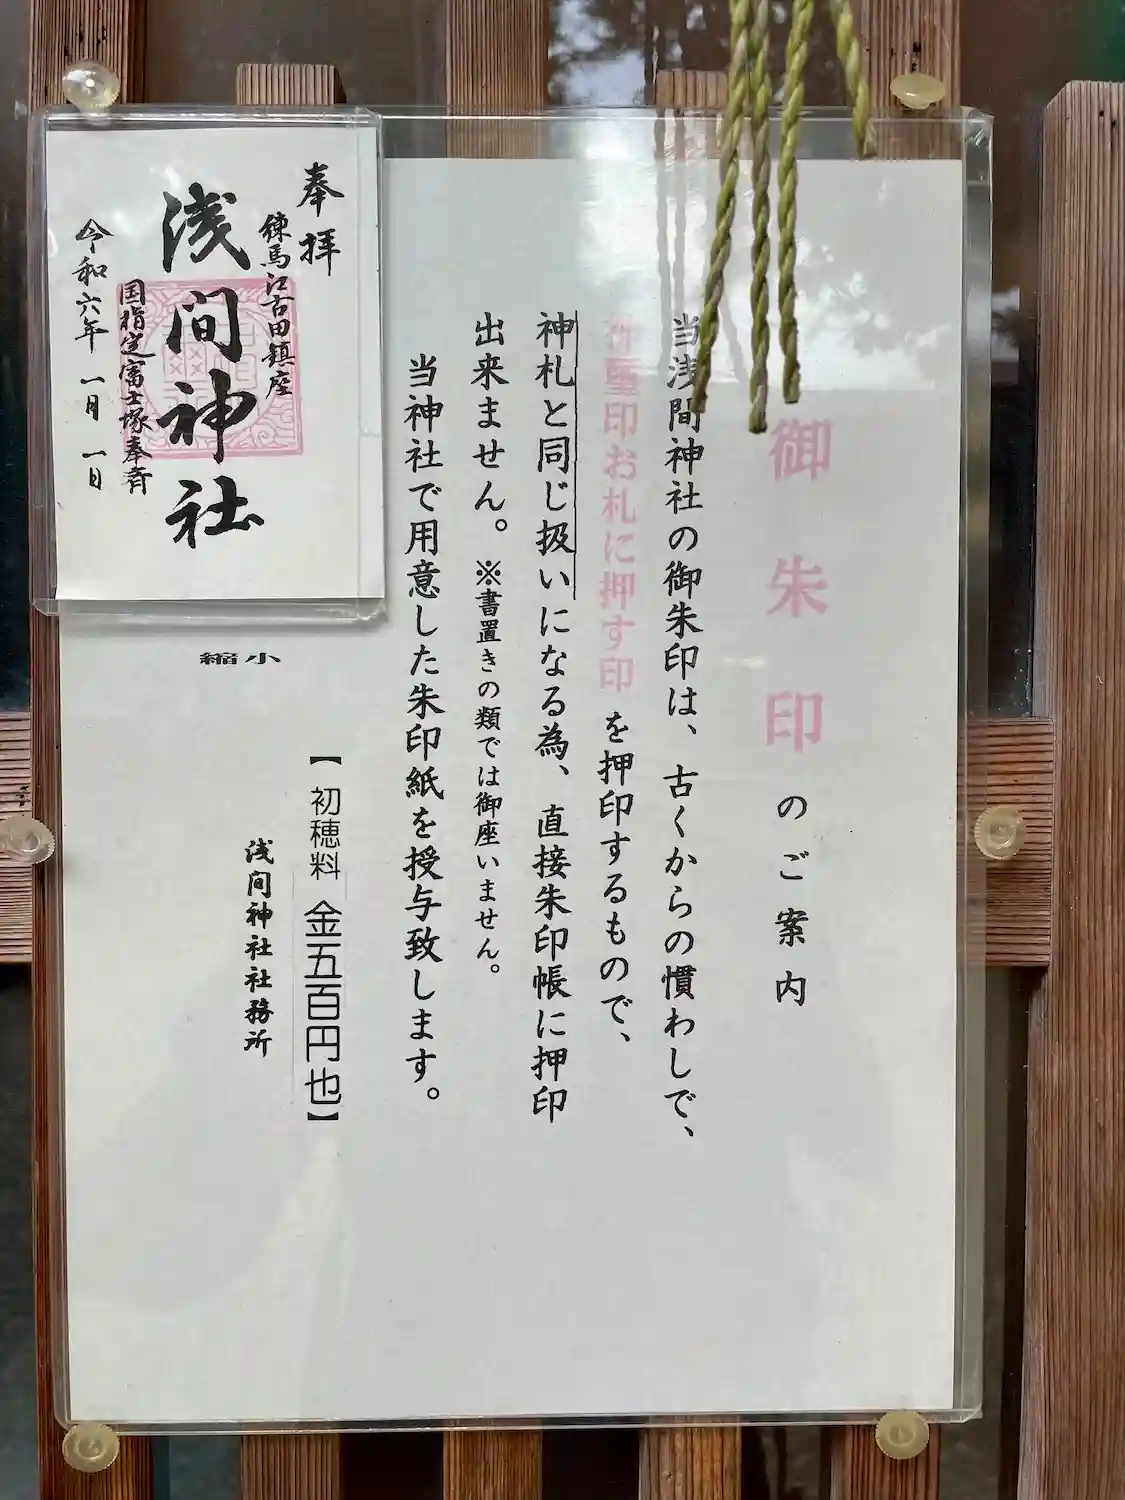 御朱印のご案内
当浅間神社の御朱印は、古くからの慣わしで、
神璽印お札に押す印を押印するもので、
神札と同じ扱いになる為、直接朱印帳に押印
出来ません。※書置きの類では御座いません。
当神社で用意した朱印紙を授与致します。
【初穂料 金五百円也】
浅間神社社務所
奉拝
練馬江古田鎮座
浅間神社
国指定富士塚奉斉
令和六年 一月一日
縮小